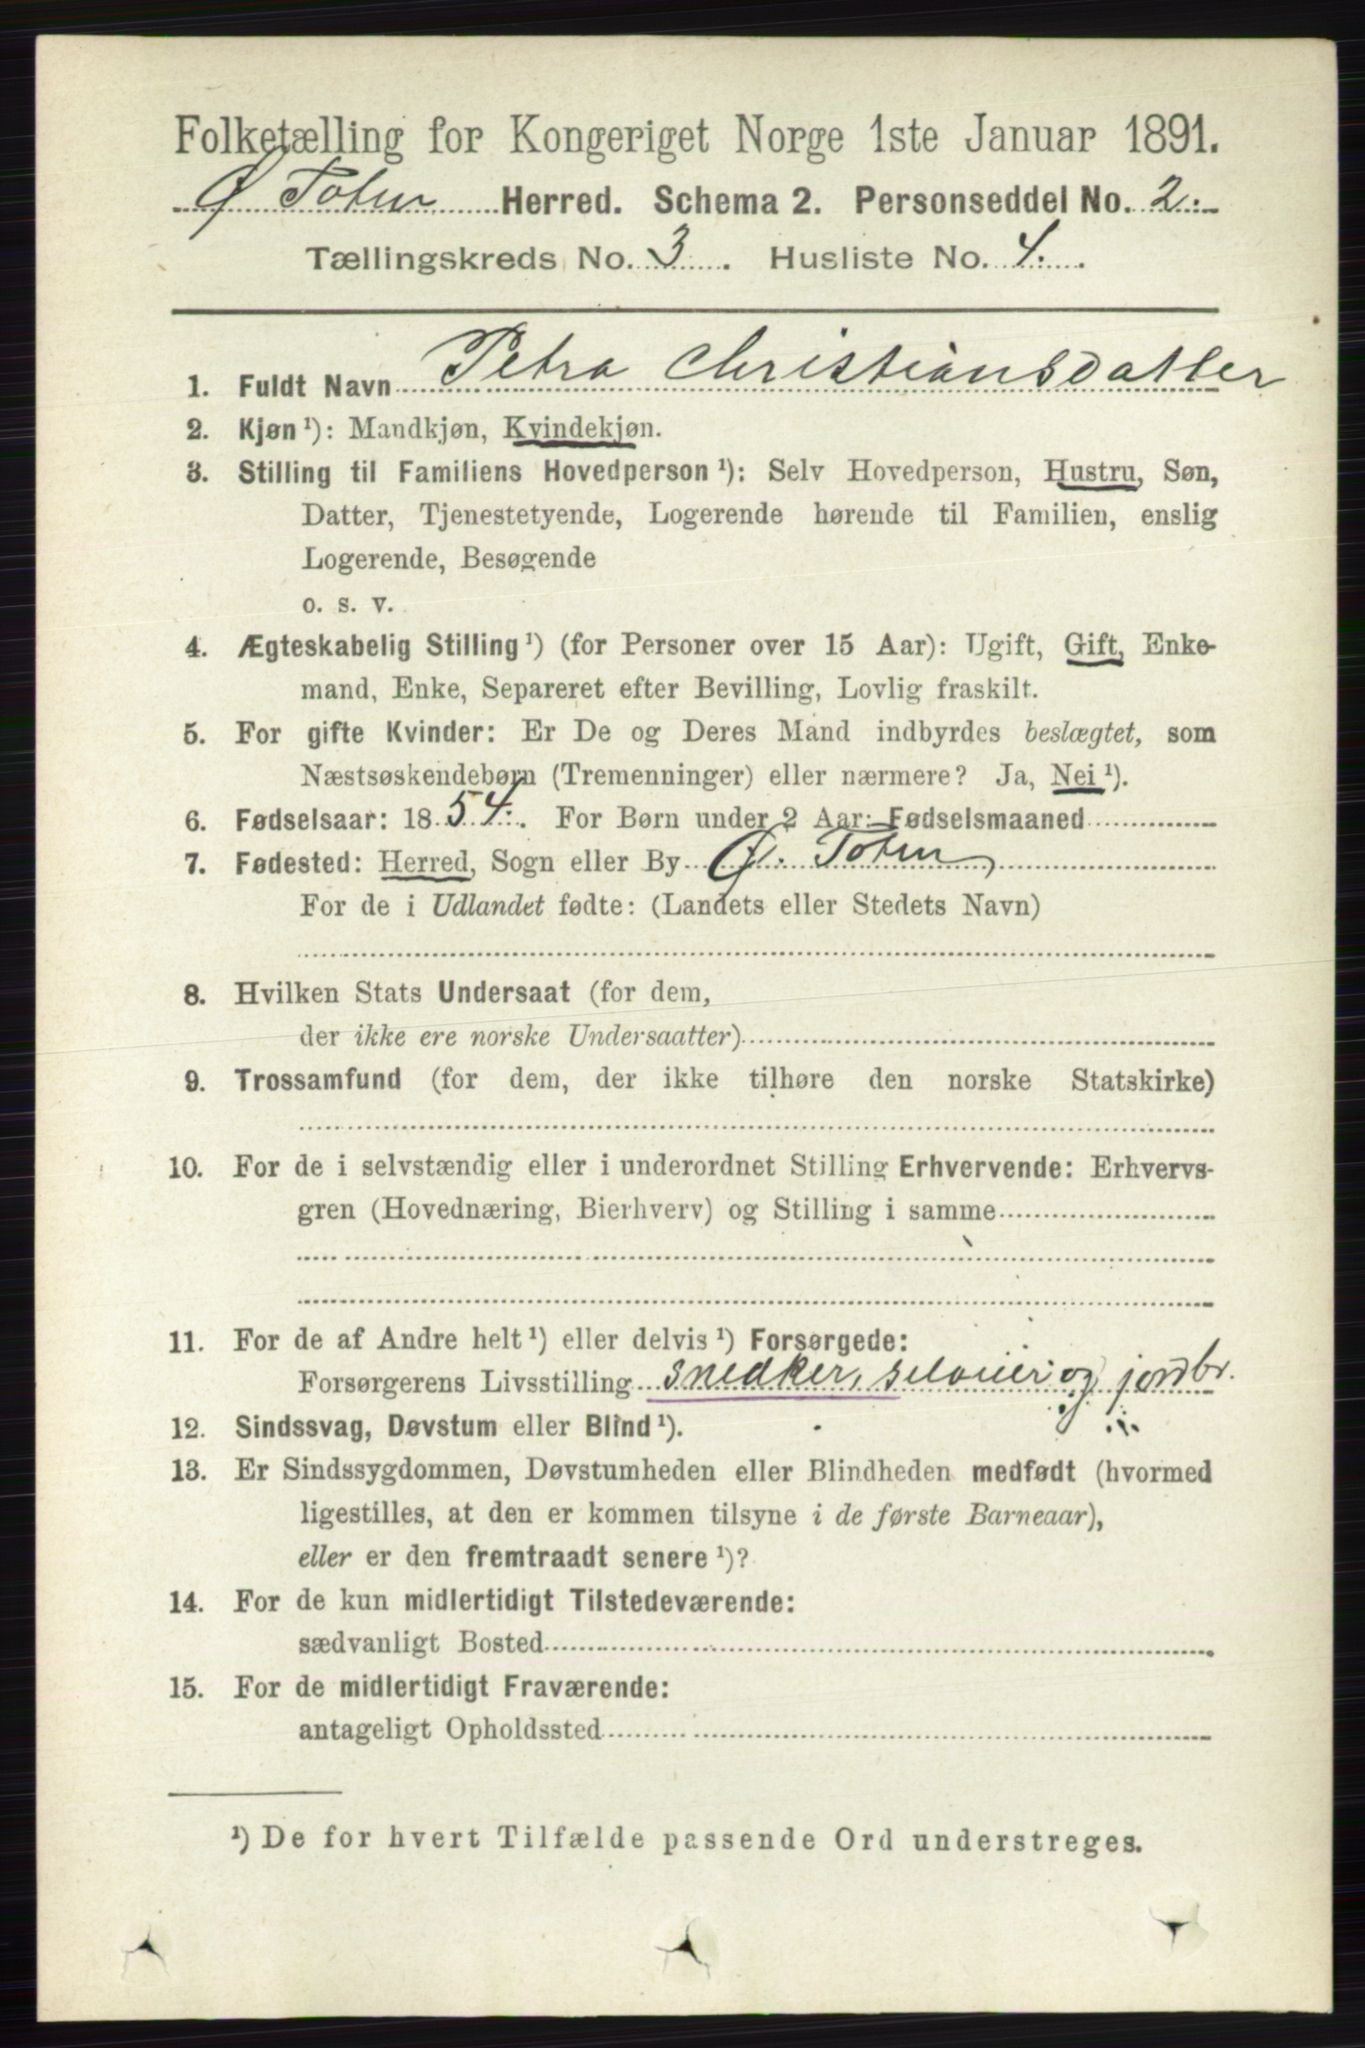 Folketælling for Kongeriget Norge 1ste Januar 1891.
Ø Toten Herred. Schema 2. Personseddel No. 2.
Tællingskreds No. 3. Husliste No. 4.
1. Fuldt Navn Petra Christiansdatter
2. Kjøn ¹): Mandkjøn, Kvindekjøn.
3. Stilling til Familiens Hovedperson ¹): Selv Hovedperson, Hustru, Søn,
Datter, Tjenestetyende, Logerende hørende til Familien, enslig
Logerende, Besøgende
o. s. v.
4. Ægteskabelig Stilling ¹) (for Personer over 15 Aar): Ugift, Gift, Enke-
mand, Enke, Separeret efter Bevilling, Lovlig fraskilt.
5. For gifte Kvinder: Er De og Deres Mand indbyrdes beslægtet, som
Næstsøskendebørn (Tremenninger) eller nærmere? Ja, Nei ¹).
6. Fødselsaar: 1854. For Børn under 2 Aar: Fødselsmaaned
7. Fødested: Herred, Sogn eller By Ø. Toten
For de i Udlandet fødte: (Landets eller Stedets Navn)
8. Hvilken Stats Undersaat (for dem,
der ikke ere norske Undersaatter)
9. Trossamfund (for dem, der ikke tilhøre den norske Statskirke)
10. For de i selvstændig eller i underordnet Stilling Erhvervende: Erhvervs-
gren (Hovednæring, Bierhverv) og Stilling i samme
11. For de af Andre helt ¹) eller delvis ¹) Forsørgede:
Forsørgerens Livsstilling snedker, selouier og jordbr.
12. Sindssvag, Døvstum eller Blind ¹).
13. Er Sindssygdommen, Døvstumheden eller Blindheden medfødt (hvormed
ligestilles, at den er kommen tilsyne i de første Barneaar),
eller er den fremtraadt senere ¹)?
14. For de kun midlertidigt Tilstedeværende:
sædvanligt Bosted
15. For de midlertidigt Fraværende:
antageligt Opholdssted
¹) De for hvert Tilfælde passende Ord understreges.